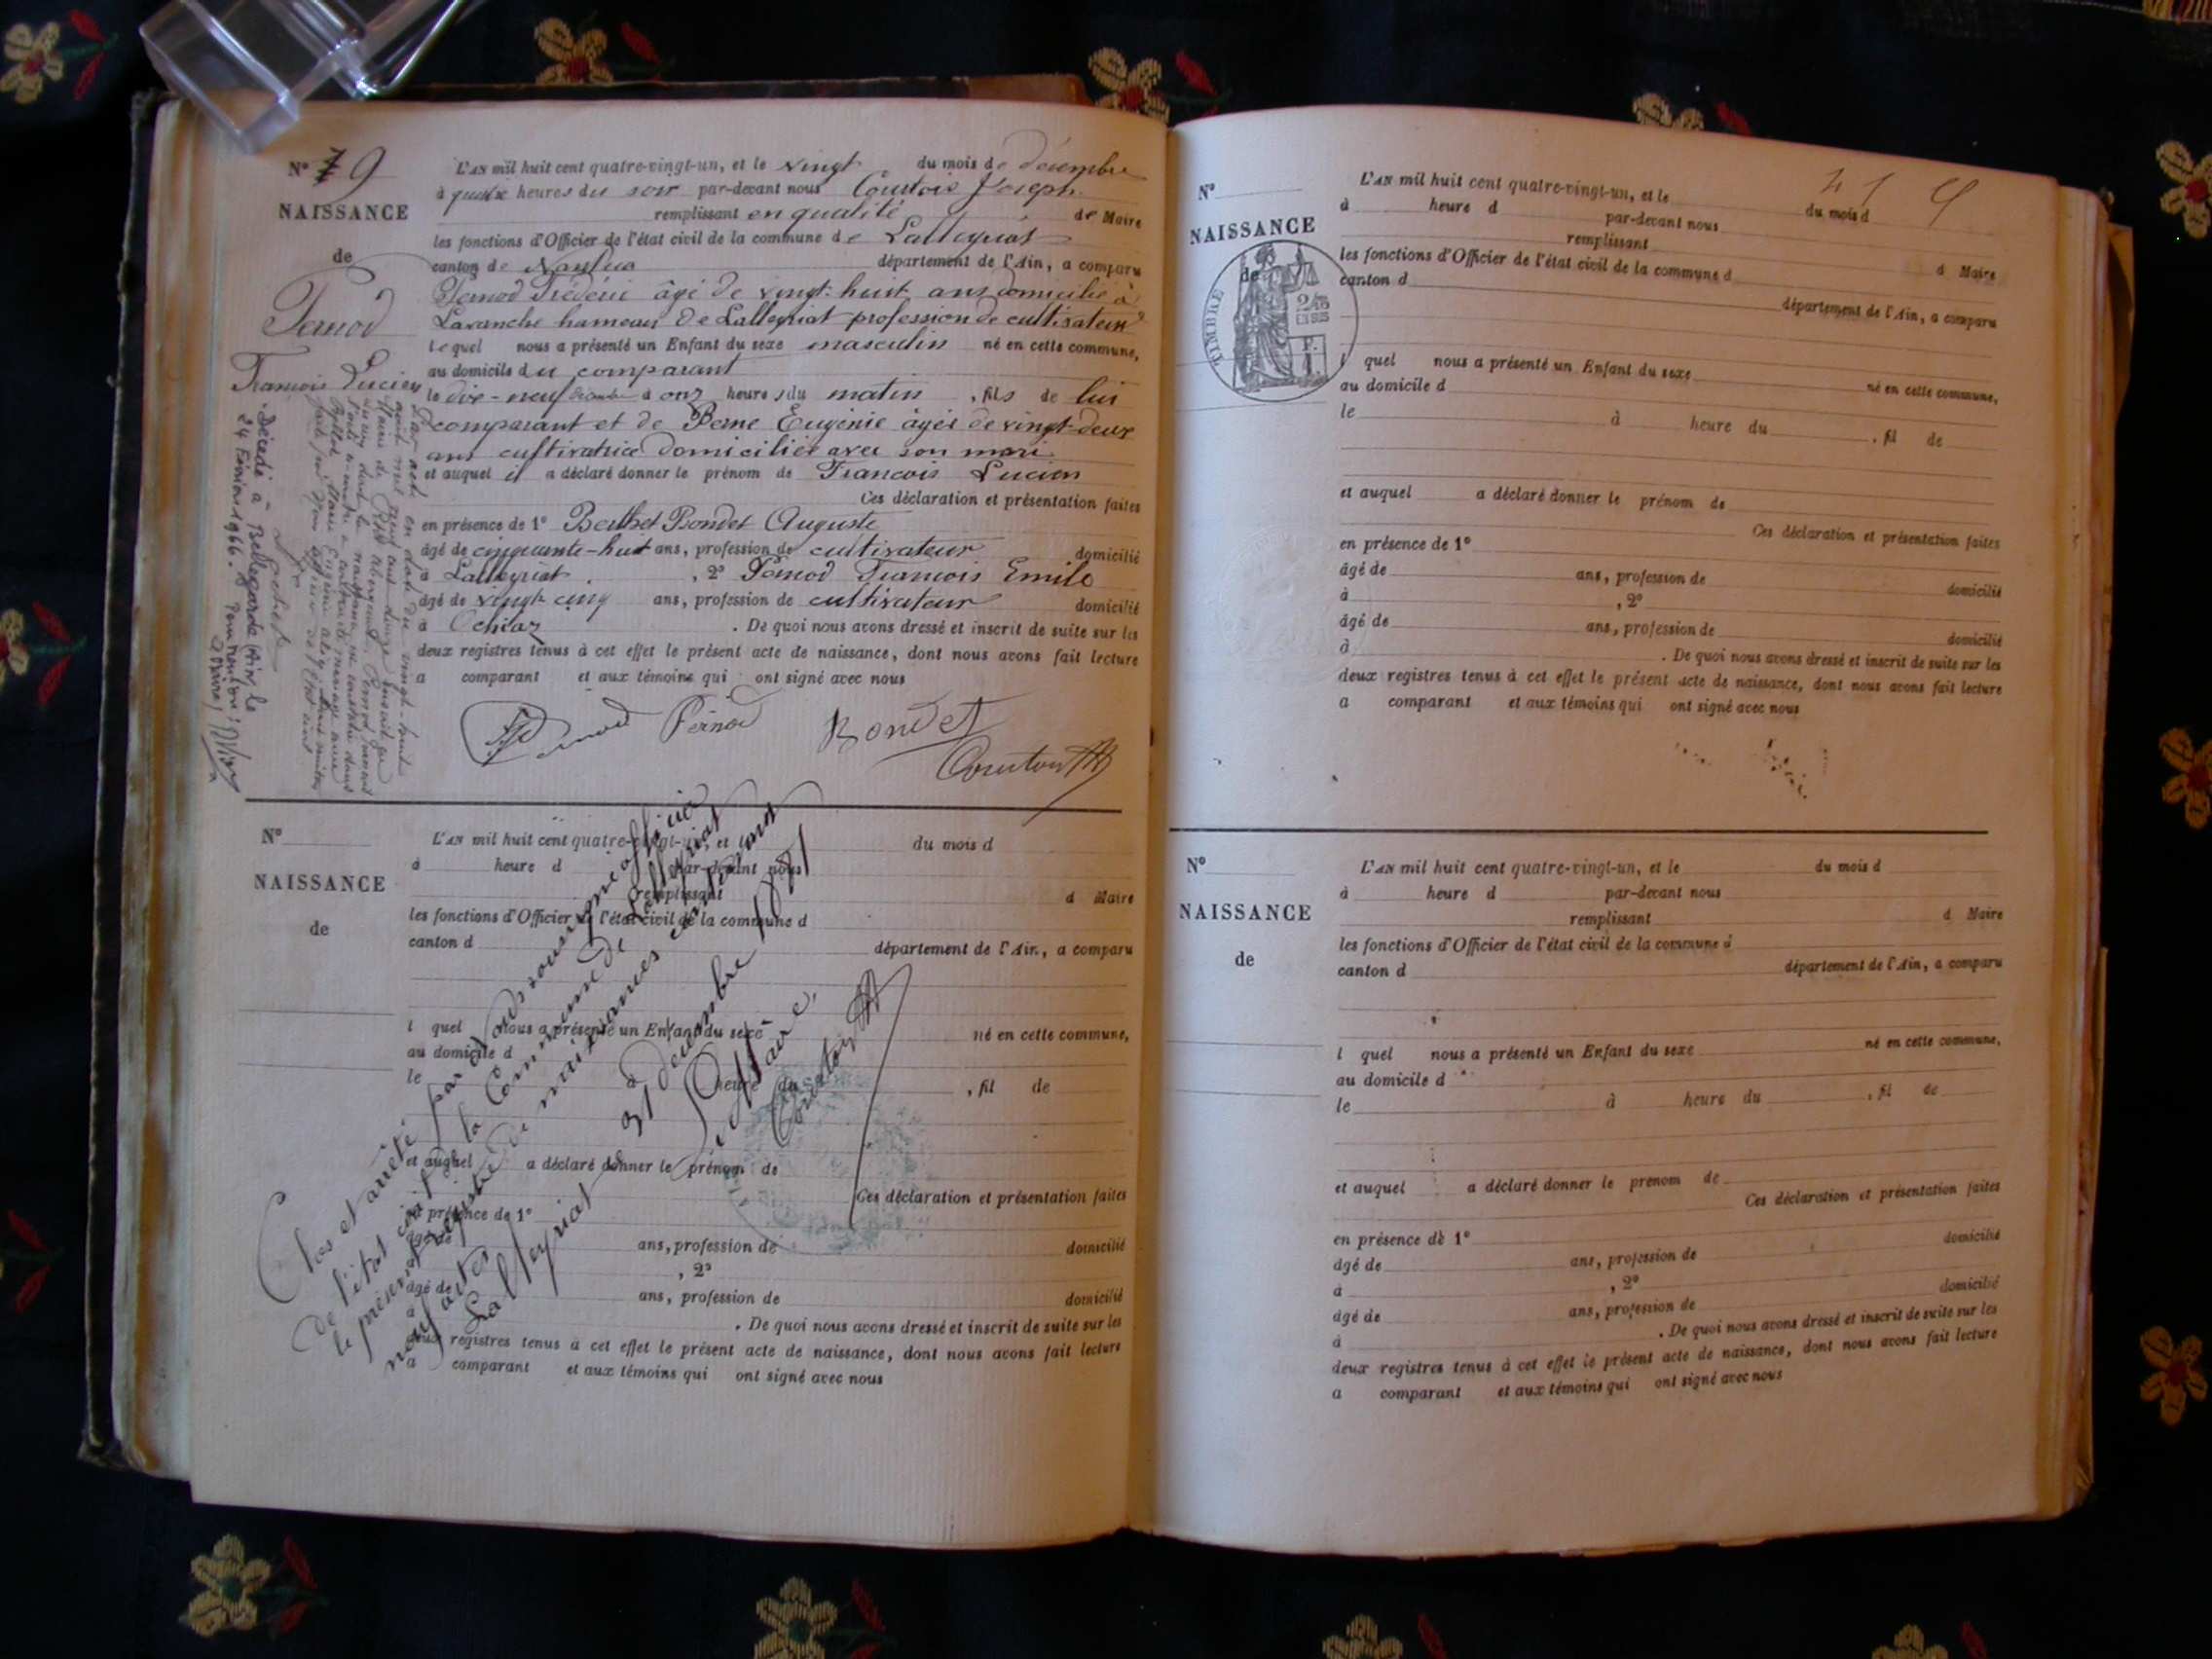 N° 9
NAISSANCE
de
Pernod
François Lucien
L'AN mil huit cent quatre-vingt-un, et le vingt du mois de décembre
à quatre heures du soir par-devant nous Courtois Joseph
remplissant en qualité de Maire
les fonctions d'Officier de l'état civil de la commune de Lalleyriat
canton de Nantua département de l'Ain, a comparu
Pernod Frédéric âgé de vingt-huit ans domicilié à
Lavanche hameau de Lalleyriat profession de cultivateur
lequel nous a présenté un Enfant du sexe masculin né en cette commune,
au domicile du comparant
le dix-neuf décembre à onz heures du matin, fils de lui
comparant et de Perne Eugénie âgée de vingt-deux
ans cultivatrice domiciliée avec son mari
et auquel il a déclaré donner le prénom de François Lucien
Ces déclaration et présentation faites
en présence de 1° Berthet Bondet Auguste
âgé de cinquante-huit ans, profession de cultivateur domicilié
à Lalleyriat, 2° Pernod François Emile
âgé de vingt cinq ans, profession de cultivateur domicilié
à Ochiaz. De quoi nous avons dressé et inscrit de suite sur les
deux registres tenus à cet effet le présent acte de naissance, dont nous avons fait lecture
a comparant et aux témoins qui ont signé avec nous
Pernod Bondet
Courtois
Décédé à Bellegarde (Ain) le
24 Février 1966.
N°
NAISSANCE
de
L'AN mil huit cent quatre-vingt-un, et le du mois d
à heure d par-devant nous
remplissant d Maire
les fonctions d'Officier de l'état civil de la commune d
canton d département de l'Ain, a comparu
l quel nous a présenté un Enfant du sexe né en cette commune,
au domicile d
le à heure du , fil de
et auquel a déclaré donner le prénom de
Ces déclaration et présentation faites
en présence de 1°
âgé de ans, profession de domicilié
à , 2°
âgé de ans, profession de domicilié
à . De quoi nous avons dressé et inscrit de suite sur les
deux registres tenus à cet effet le présent acte de naissance, dont nous avons fait lecture
a comparant et aux témoins qui ont signé avec nous
Clos et arrêté par Nous soussigné officier
de l'état civil de la Commune de Lalleyriat
le présent registre de naissances comprenant
neuf actes
Lalleyriat 31 décembre 1881
Le Maire,
Courtois
N°
NAISSANCE
de
TIMBRE
L'AN mil huit cent quatre-vingt-un, et le du mois d
à heure d par-devant nous
remplissant d Maire
les fonctions d'Officier de l'état civil de la commune d
canton d département de l'Ain, a comparu
l quel nous a présenté un Enfant du sexe né en cette commune,
au domicile d
le à heure du , fil de
et auquel a déclaré donner le prénom de
Ces déclaration et présentation faites
en présence de 1°
âgé de ans, profession de domicilié
à , 2°
âgé de ans, profession de domicilié
à . De quoi nous avons dressé et inscrit de suite sur les
deux registres tenus à cet effet le présent acte de naissance, dont nous avons fait lecture
a comparant et aux témoins qui ont signé avec nous
N°
NAISSANCE
de
L'AN mil huit cent quatre-vingt-un, et le du mois d
à heure d par-devant nous
remplissant d Maire
les fonctions d'Officier de l'état civil de la commune d
canton d département de l'Ain, a comparu
l quel nous a présenté un Enfant du sexe né en cette commune,
au domicile d
le à heure du , fil de
et auquel a déclaré donner le prénom de
Ces déclaration et présentation faites
en présence de 1°
âgé de ans, profession de domicilié
à , 2°
âgé de ans, profession de domicilié
à . De quoi nous avons dressé et inscrit de suite sur les
deux registres tenus à cet effet le présent acte de naissance, dont nous avons fait lecture
a comparant et aux témoins qui ont signé avec nous